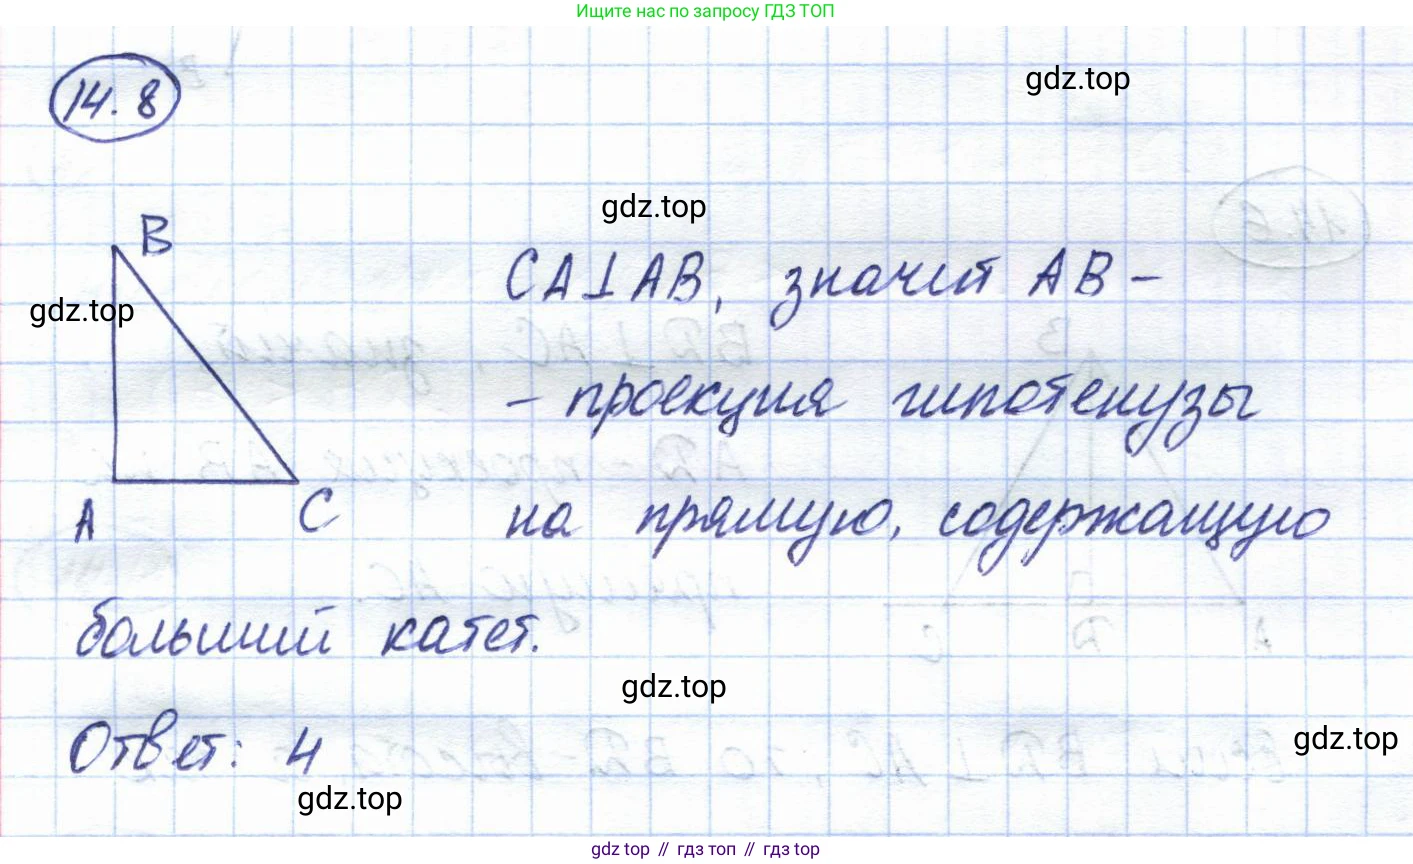 Ищите нас по запросу ГДЗ ТОП
14.8
gdz.top
gdz.top
B
CA⊥AB, значит AB –
gdz.top
– проекция гипотенузы
A
C
на прямую, содержащую
больший катет.
gdz.top
Ответ: 4
gdz.top
gdz.top
gdz top // гдз топ // gdz top